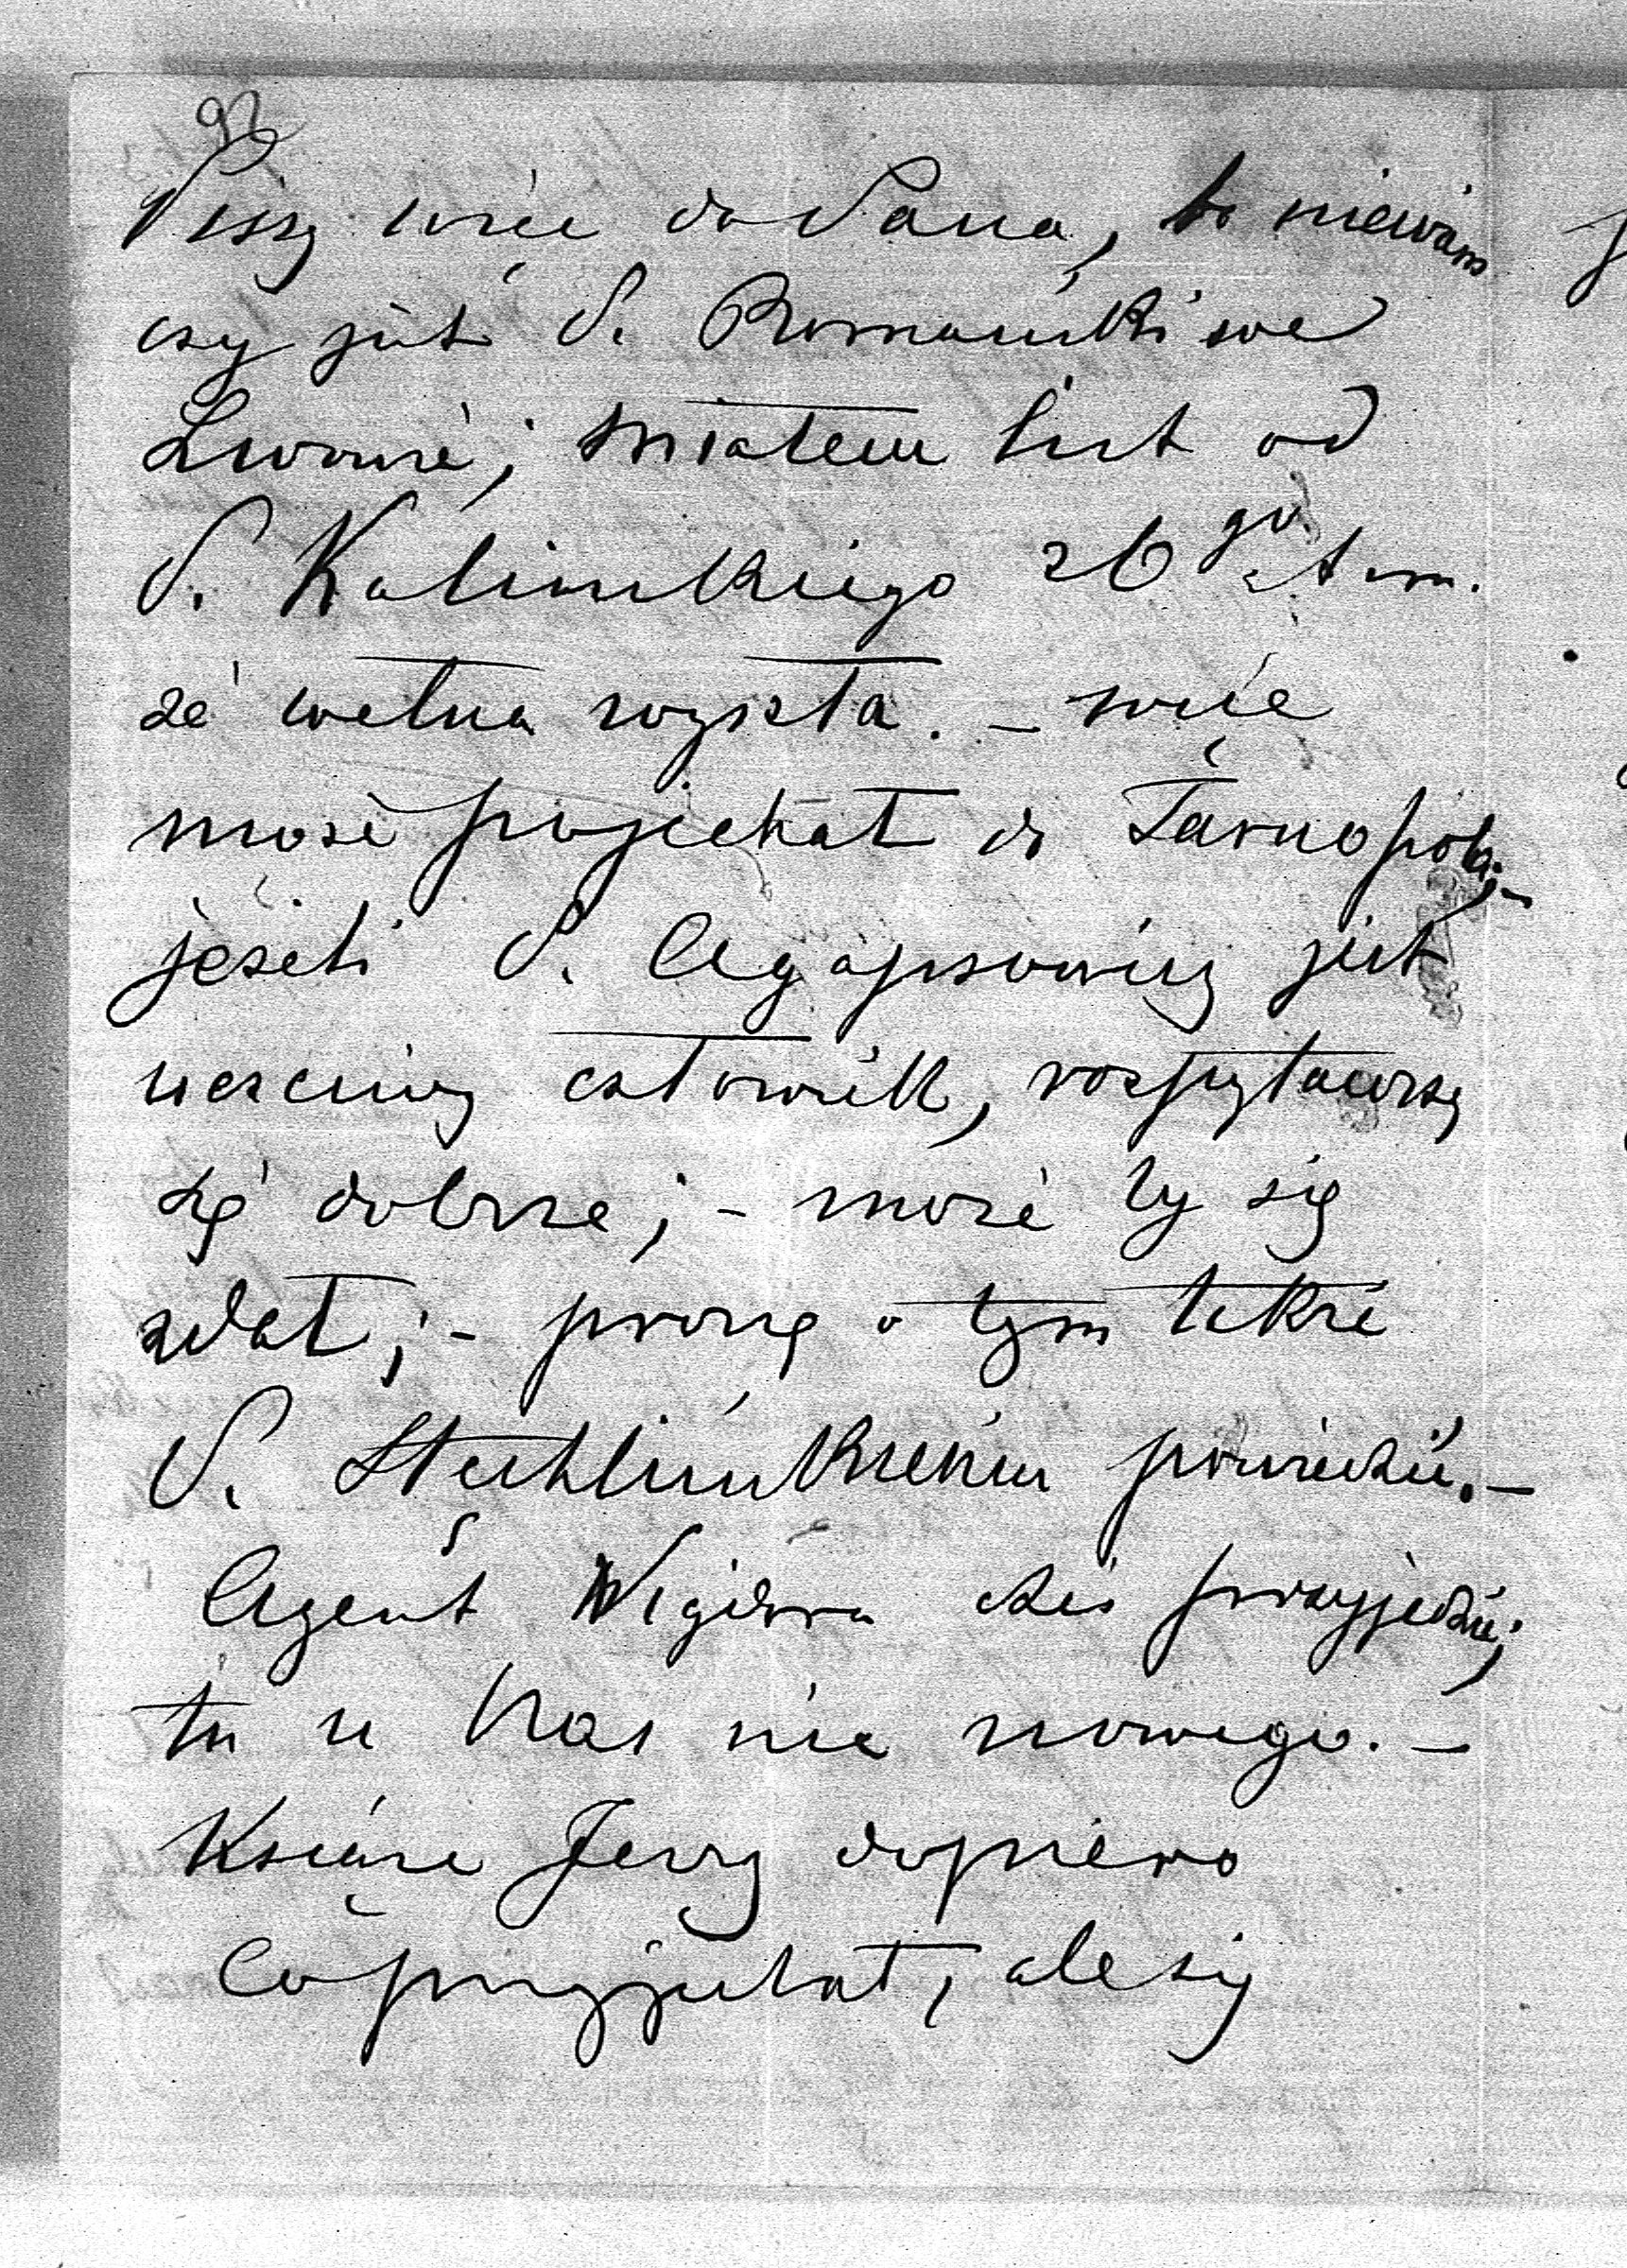 92
Piszę więc do Pana, bo niewiem
czy jest P. Romański we
Lwowie; miałem list od
P. Kalinskiego 26go t. m.
że wełna wyszła. – więc
może pojechał do Tarnopola;–
jeżeli P. Agopsowicz jest
uczciwy człowiek, rozpytawszy
się dobrze; – może by się
zdał; – proszę o tym także
P. Stechlińskiemu powiedzić. –
Agent dziś przyjedzie;
tu u Nas nic nowego. –
Książe Jerzy dopiero
co przyjechał, ale się